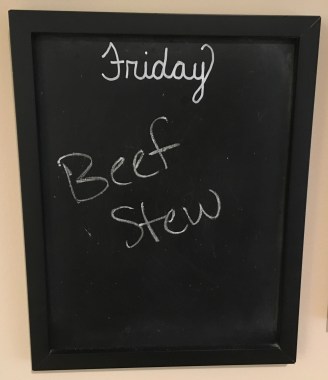 Friday
Beef
Stew